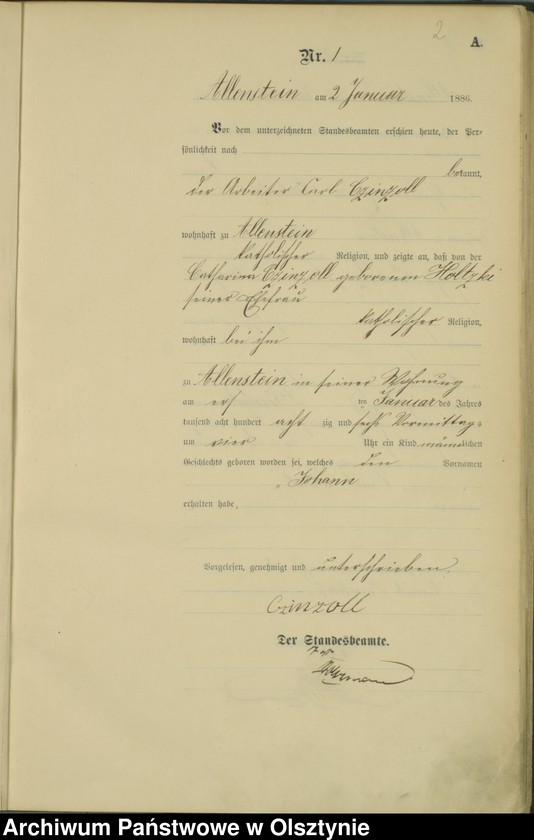 2
A.
Nr. 1
Allenstein am 2 Januar 1886.
Vor dem unterzeichneten Standesbeamten erschien heute, der Per-
sönlichkeit nach
bekannt,
der Arbeiter Carl Czinzoll
wohnhaft zu Allenstein
katholischer Religion, und zeigte an, daß von der
Catharina Czinzoll geborenen Holtzki
seiner Ehefrau
katholischer Religion,
wohnhaft bei ihm
zu Allenstein in seiner Wohnung
am ers ten Januar des Jahres
tausend acht hundert acht zig und sechs Vormittags
um vier Uhr ein Kind männlichen
Geschlechts geboren worden sei, welches den Vornamen
Johann
erhalten habe.
Vorgelesen, genehmigt und unterschrieben.
Czinzoll
Der Standesbeamte.
Archiwum Państwowe w Olsztynie